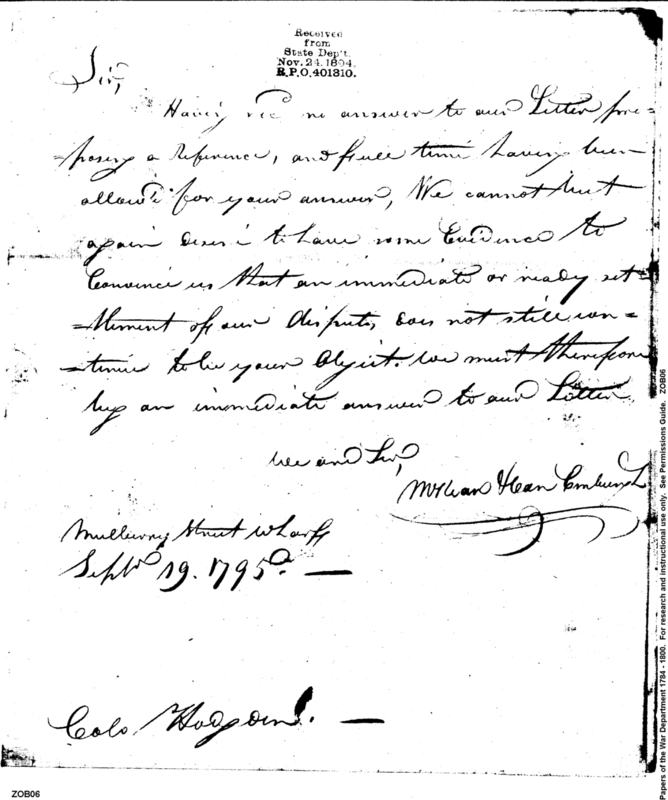 Received
from
State Dep't.
Nov. 24. 1894.
R.P.O. 401310.
Sir,
Having rec'd no answer to our Letter pro=
=posing a Reference, and full time having been
allow'd for your answer, We cannot but
again desire to have some Evidence to
Convince us that an immediate or ready set=
=tlement of our disputes, does not still con=
=tinue to be your Object. we must therefore
beg an immediate answer to our Letter.
we are Sir,
Mulberry Street wharf
Sept. 19. 1795. —
Colo Hodgdon. —
ZOB06
Papers of the War Department 1784 - 1800. For research and instructional use only. See Permissions Guide. ZOB06